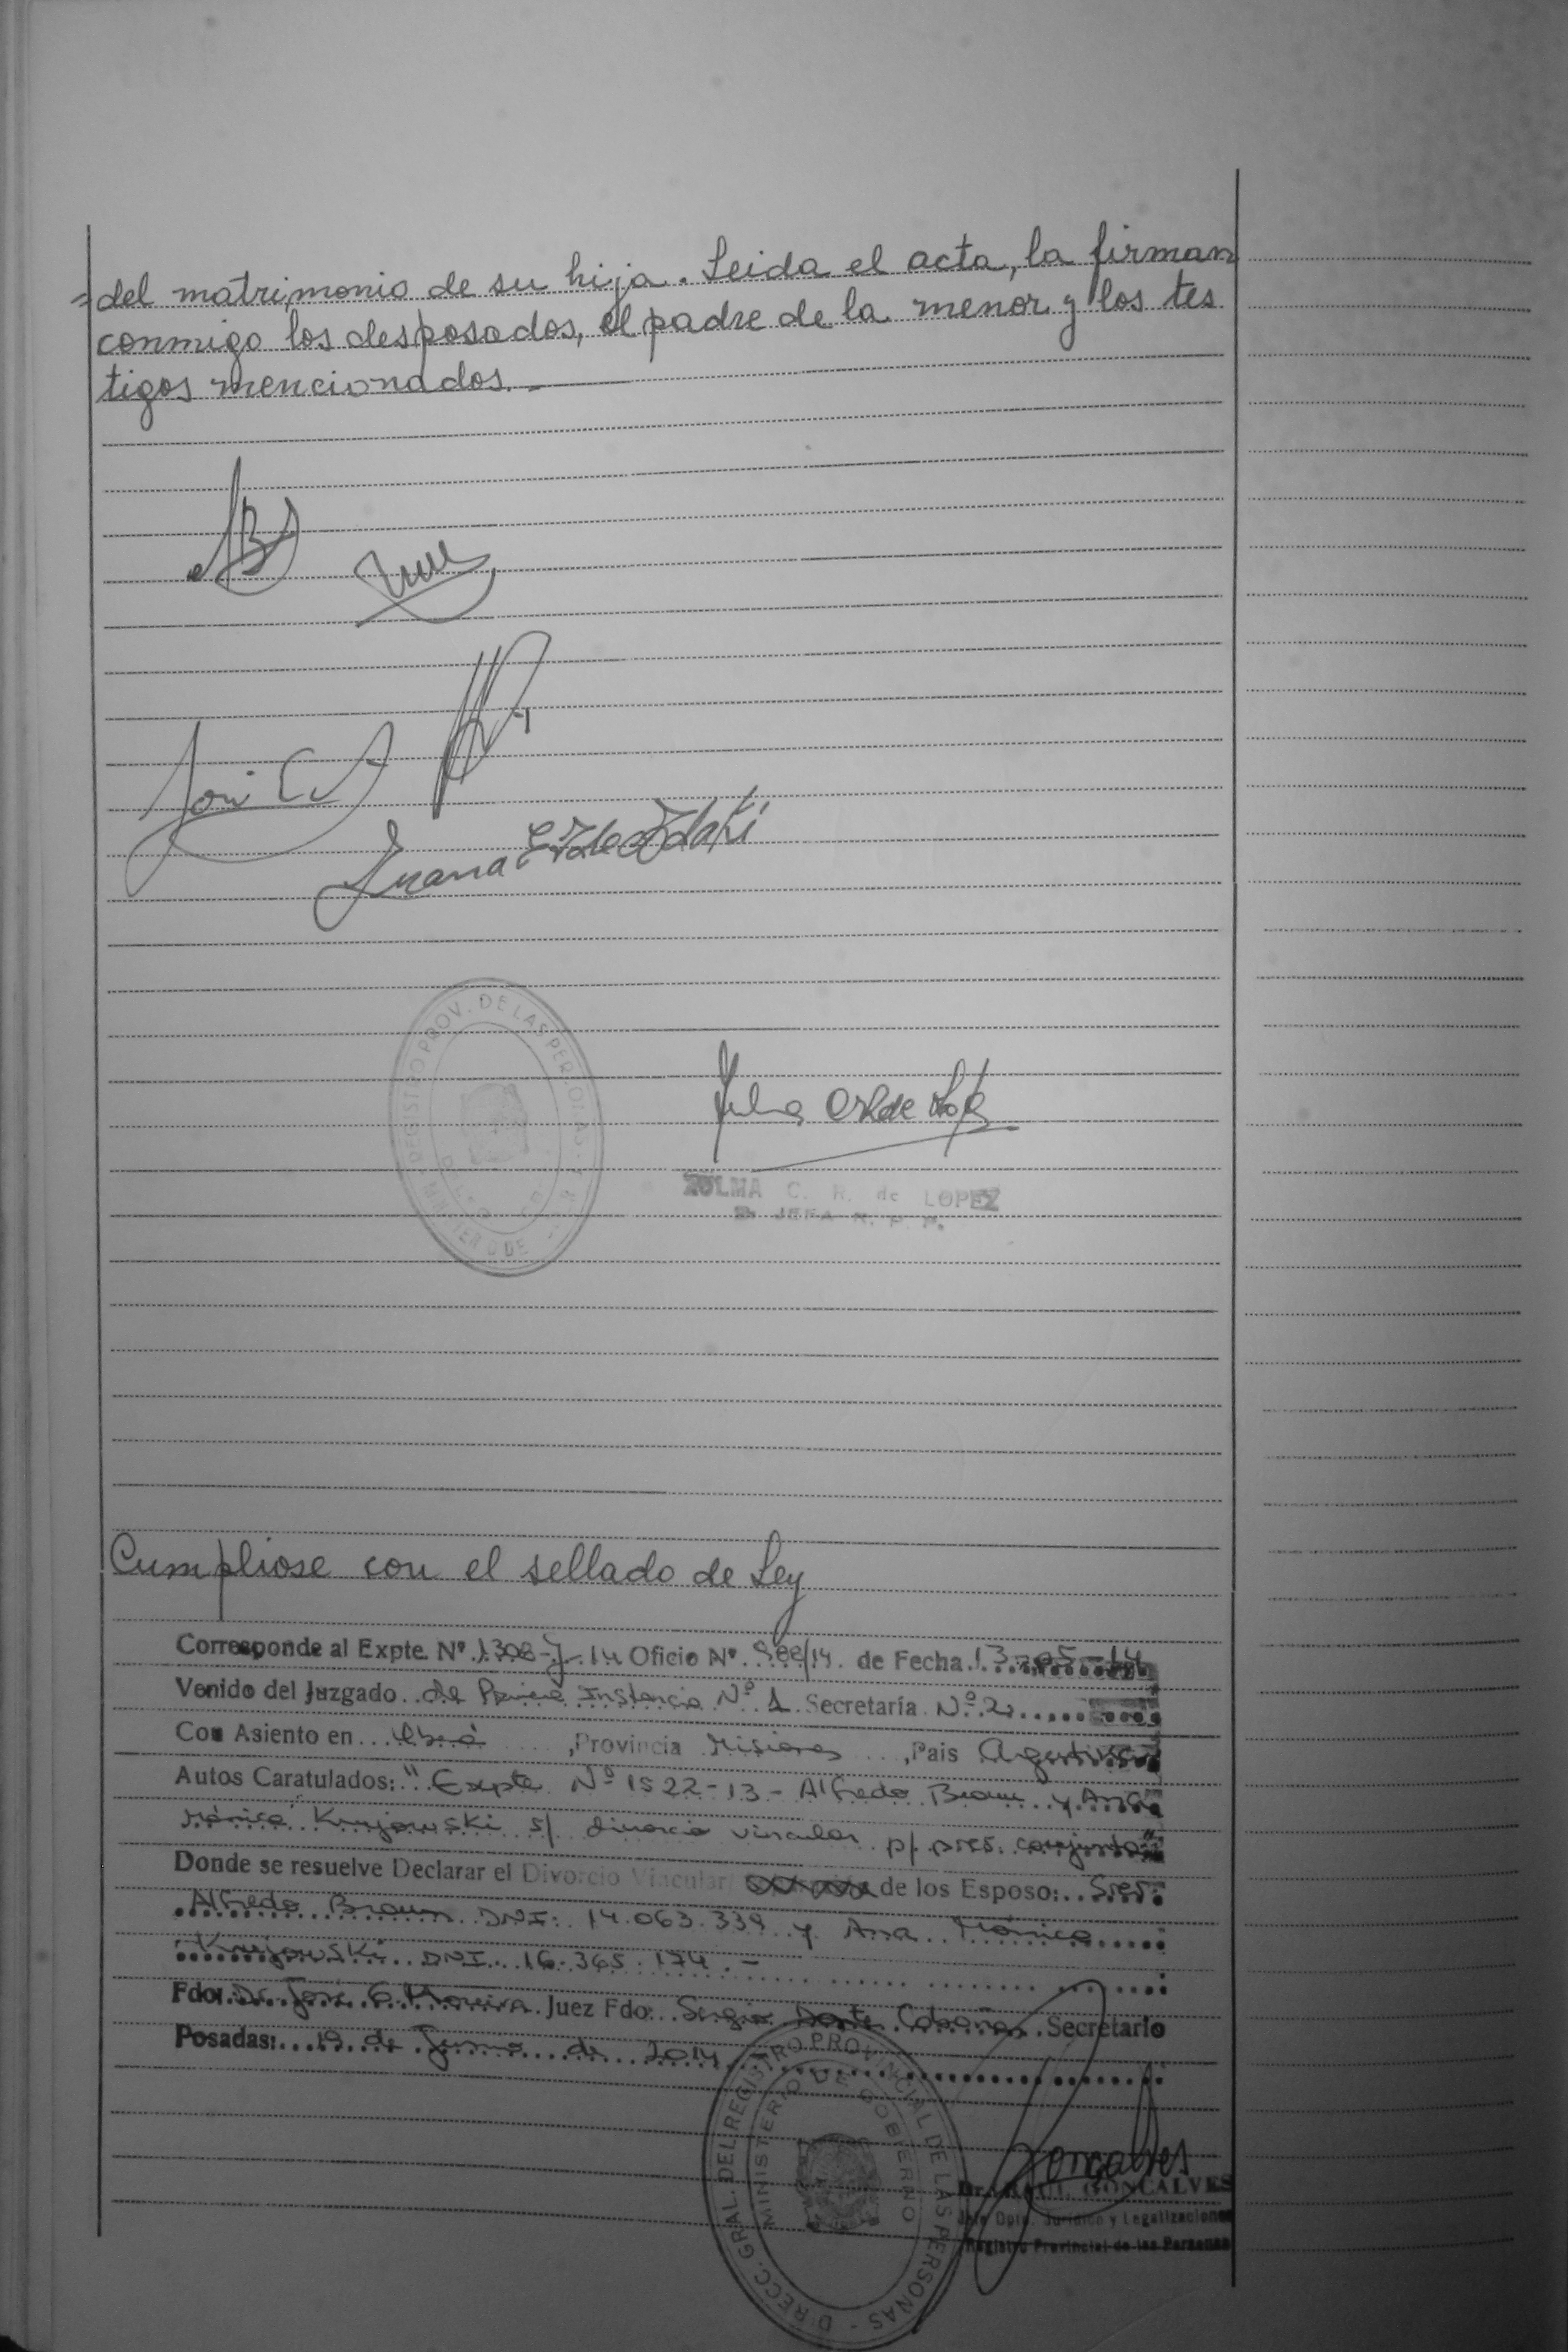 =del matrimonio de su hija. Leida el acta, la firman
conmigo los desposados, el padre de la menor y los tes
tigos mencionados.-
Juana
REGISTRO PROV. DE LAS PERSONAS
ZULMA C. R. de LOPEZ
JEFA R. P. P.
Cumpliose con el sellado de Ley
Corresponde al Expte. Nº 1308-J-14 Oficio Nº /14 de Fecha 13-05-14
Venido del Juzgado de Primera Instancia Nº 1 Secretaría Nº 2
Con Asiento en Oberá, Provincia Misiones, Pais Argentina
Autos Caratulados: "Expte Nº 1522-13- Alfredo Braun y Ana
Mónica Krujowski s/ divorcio vincular p/ pres. conjunta"
Donde se resuelve Declarar el Divorcio Vincular/ de los Esposo: Sres.
Alfredo Braun DNI: 14.063.339 y Ana Mónica
Krujowski DNI 16.365.174.-
Fdo: Dr. José G. Moreira Juez Fdo: Sergio Dante Secretario
Posadas: 19 de Junio de 2014
DIRECC. GRAL. DEL REGISTRO PROVINCIAL DE LAS PERSONAS -
MINISTERIO DE GOBIERNO
Goncalves
Dr. RAUL GONCALVES
Jefe Dpto. Jurídico y Legalizaciones
Registro Provincial de las Personas